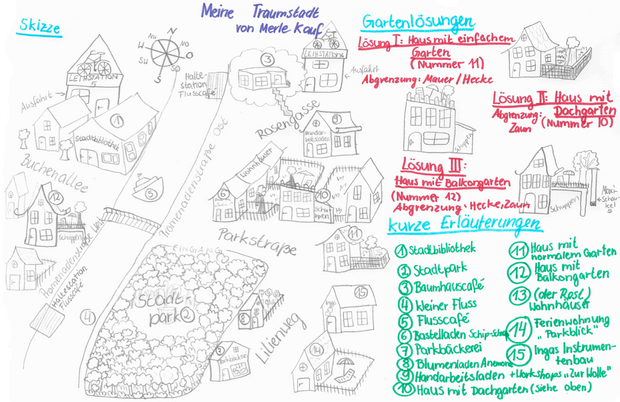 Skizze
Meine Traumstadt
von Merle Kauf
LEIHSTATION
Ausfahrt
1
Stadtbibliothek
Buchenallee
12
Schuppen
Haltestation
Flusscafé
4
5
Halte-
station
Flusscafé
3
LEIHSTATION
Ausfahrt
Rosengasse
Handarbeitsladen
Promenadenstraße Ost
Wohnhäuser
10
Parkstraße
11
EINGANG
Stadt-
park 2
Lilienweg
15
14
Gartenlösungen
Lösung I: Haus mit einfachem
Garten
(Nummer 11)
Abgrenzung: Mauer/Hecke
Lösung II: Haus mit
Dachgarten
Abgrenzung: (Nummer 10)
Zaun
Schuppen
Lösung III:
Haus mit Balkongarten
(Nummer 12)
Abgrenzung: Hecke, Zaun
Schuppen
kurze Erläuterungen
1 Stadtbibliothek
2 Stadtpark
3 Baumhauscafé
4 kleiner Fluss
5 Flusscafé
6 Bastelladen
7 Parkbäckerei
8 Blumenladen Anemone
9 Handarbeitsladen + Workshops "Zur Wolle"
10 Haus mit Dachgarten (siehe oben)
11 Haus mit
normalem Garten
12 Haus mit
Balkongarten
13 (der Rest)
Wohnhäuser
14 Ferienwohnung
"Parkblick"
15 Ingas Instrumen-
tenbau